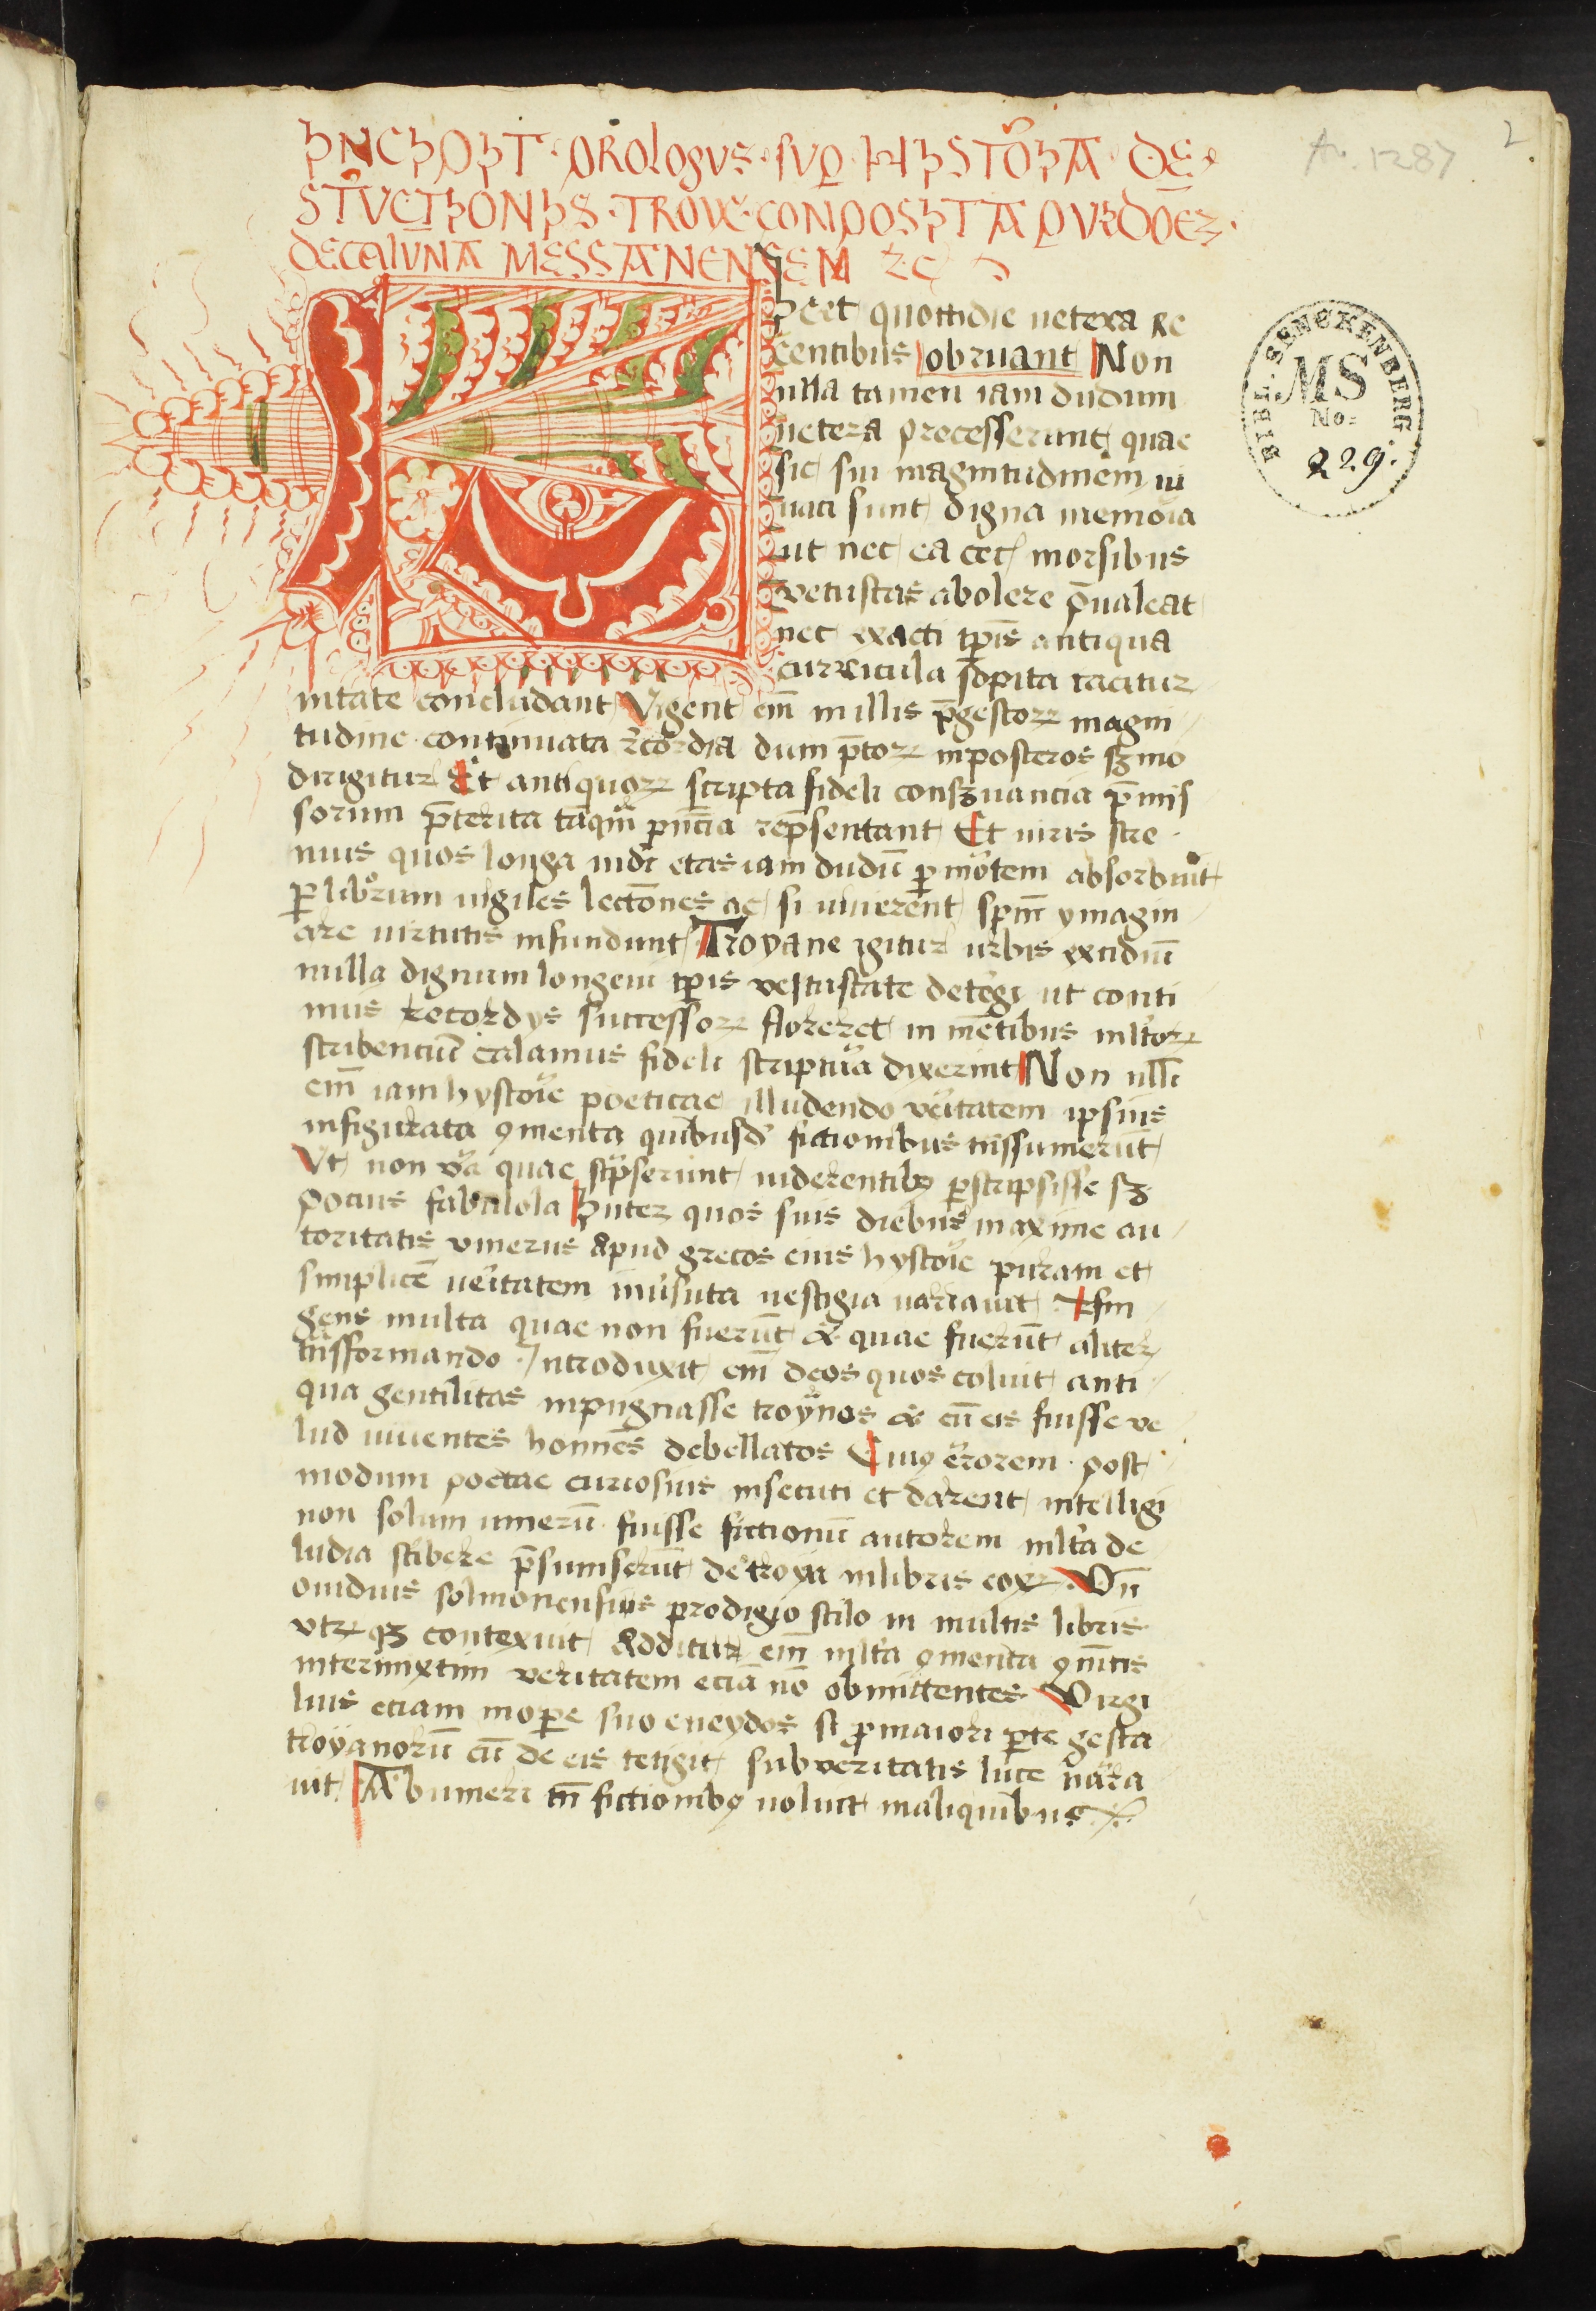 INCIPIT · PROLOGUS · SUP HISTORIA · DE
STRUCTIONIS · TROYE · CONPOSITA P IUDICEM ·
DE CALUNA MESSANENSEM ꝛc
Licet quottidie vetera re
centibus obruant Non
nulla tamen iam dudum
uetera precesserunt quae
sic sui magnitudinem ui
uaci sunt digna memoria
ut nec ea cec morsibus
vetustas abolere p̄ualeat
nec exacti tp̄is antiqua
curricula sopita tacitur
nitate concludant Vigent em̄ in illis p̄ gestoꝝ magni
tudine continuata recordia dum p̄toꝝ in posteros sermo
dirigitur Et antiquoꝝ scripta fideli conseruancia p̄mis
sorum p̄terita tāqm̄ p̄ncia rep̄sentant Et uiris stre
nuis quos longa mūdi etas iam dudū p mortem absorbuit
ꝑ librorum uigiles lectōnes ac si uiuerent sp̄m ymagin
are uirtutis infundunt Troyane igitur urbis excidiū
nulla dignum longeui tp̄is vestustate detegi ut conti
nuis recordys successoꝝ floreret in mētibus mltoꝝ
scribenciū calamus fideli scriptura dixerint Non nlli
em̄ iam hystorie poeticae illudendo veritatem ipsius
in figurata ꝯmenta quibusd̄ fictionibus trāssumerūt
Vt non vera quae scripserunt uiderentibꝰ perscripsisse sꝫ
pocius fabulosa Inter quos suis diebus maxime au
toritatis vmerus apud grecos eius hystorie puram et
simplicē ueritatem inuisuta uestigia uariauit · Cfin
gens multa quae non fuerūt & quae fuerūt aliter
trāsformando · Introduxit em̄ deos quos coluit anti
qua gentilitas inpugnasse troynos & cū eis fuisse ve
lud uiuentes homines debellatos Cuiꝰ errorem · post
modum poetae curiosius insecuti et darent intelligi
non solum umerū fuisse fictionū autorem mlta de
ludia scribere p̄sumserūt de troya in libris eoꝝ · Vn̄
ouidius solmonensius prodigio stilo in multis libris
vtꝝqꝫ contexuit Additur em̄ mlta ꝯmenta ꝯmētis
intermixtim veritatem eciā nō obmittentes Virgi
lius etiam in opere suo eneydos si ꝓ maiori parte gesta
troyanorū cū de eis tetigit sub veritatis luce narra
uit Ab umeri tn̄ fictionibꝰ noluit in aliquibus
Fr. 1287
2
BIBL. SENCKENBERG.
MS
No:
229.